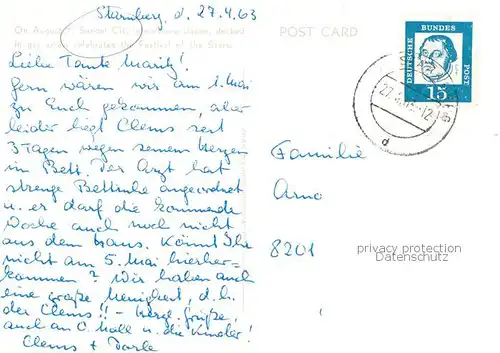 Starnberg, d. 27.4.63
POST CARD
On August 7, Sendai City,
Liebe Tante Maritz!
Gern wären wir am 1. Mai
zu Euch gekommen, aber
leider liegt Clems seit
3 Tagen wegen seinem Herzen
in Bett. Der Arzt hat
strenge Bettruhe angeordnet
u. er darf die kommende
Woche auch noch nicht
aus dem Haus. Könnt Ihr
nicht am 5. Mai hierher-
kommen? Wir haben auch
eine große Neuigkeit, d.h.
der Clems!! - Herzl. Grüße,
auch an O. Moll u. die Kinder!
Clems + Dorle
DEUTSCHE
BUNDES
POST
15
Familie
Arno
8201
privacy protection
Datenschutz